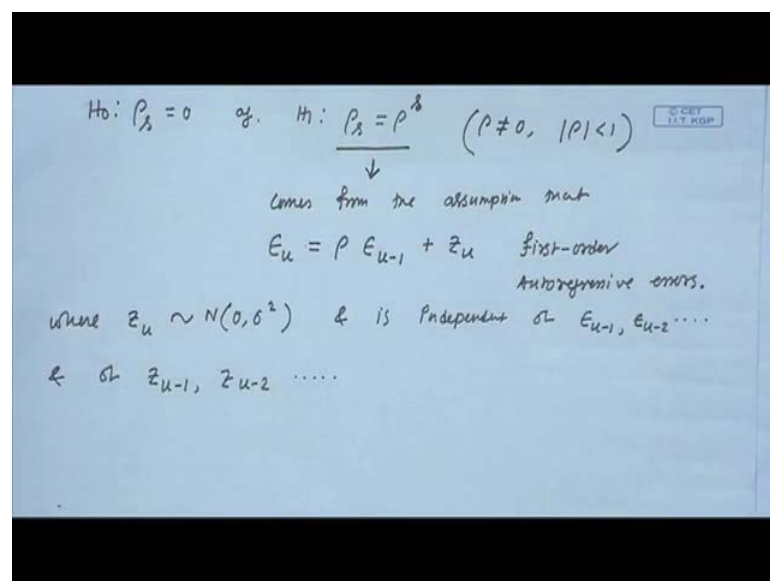 H0: ρₛ = 0 vs. H1: ρₛ = ρˢ (ρ ≠ 0, |ρ| < 1)
© CET
I.I.T. KGP
↓
comes from the assumption that
Єᵤ = ρ Єᵤ₋₁ + Zᵤ first-order
Autoregressive errors.
where Zᵤ ~ N(0, σ²) & is independent of Єᵤ₋₁, Єᵤ₋₂ ....
& of Zᵤ₋₁, Zᵤ₋₂ .....